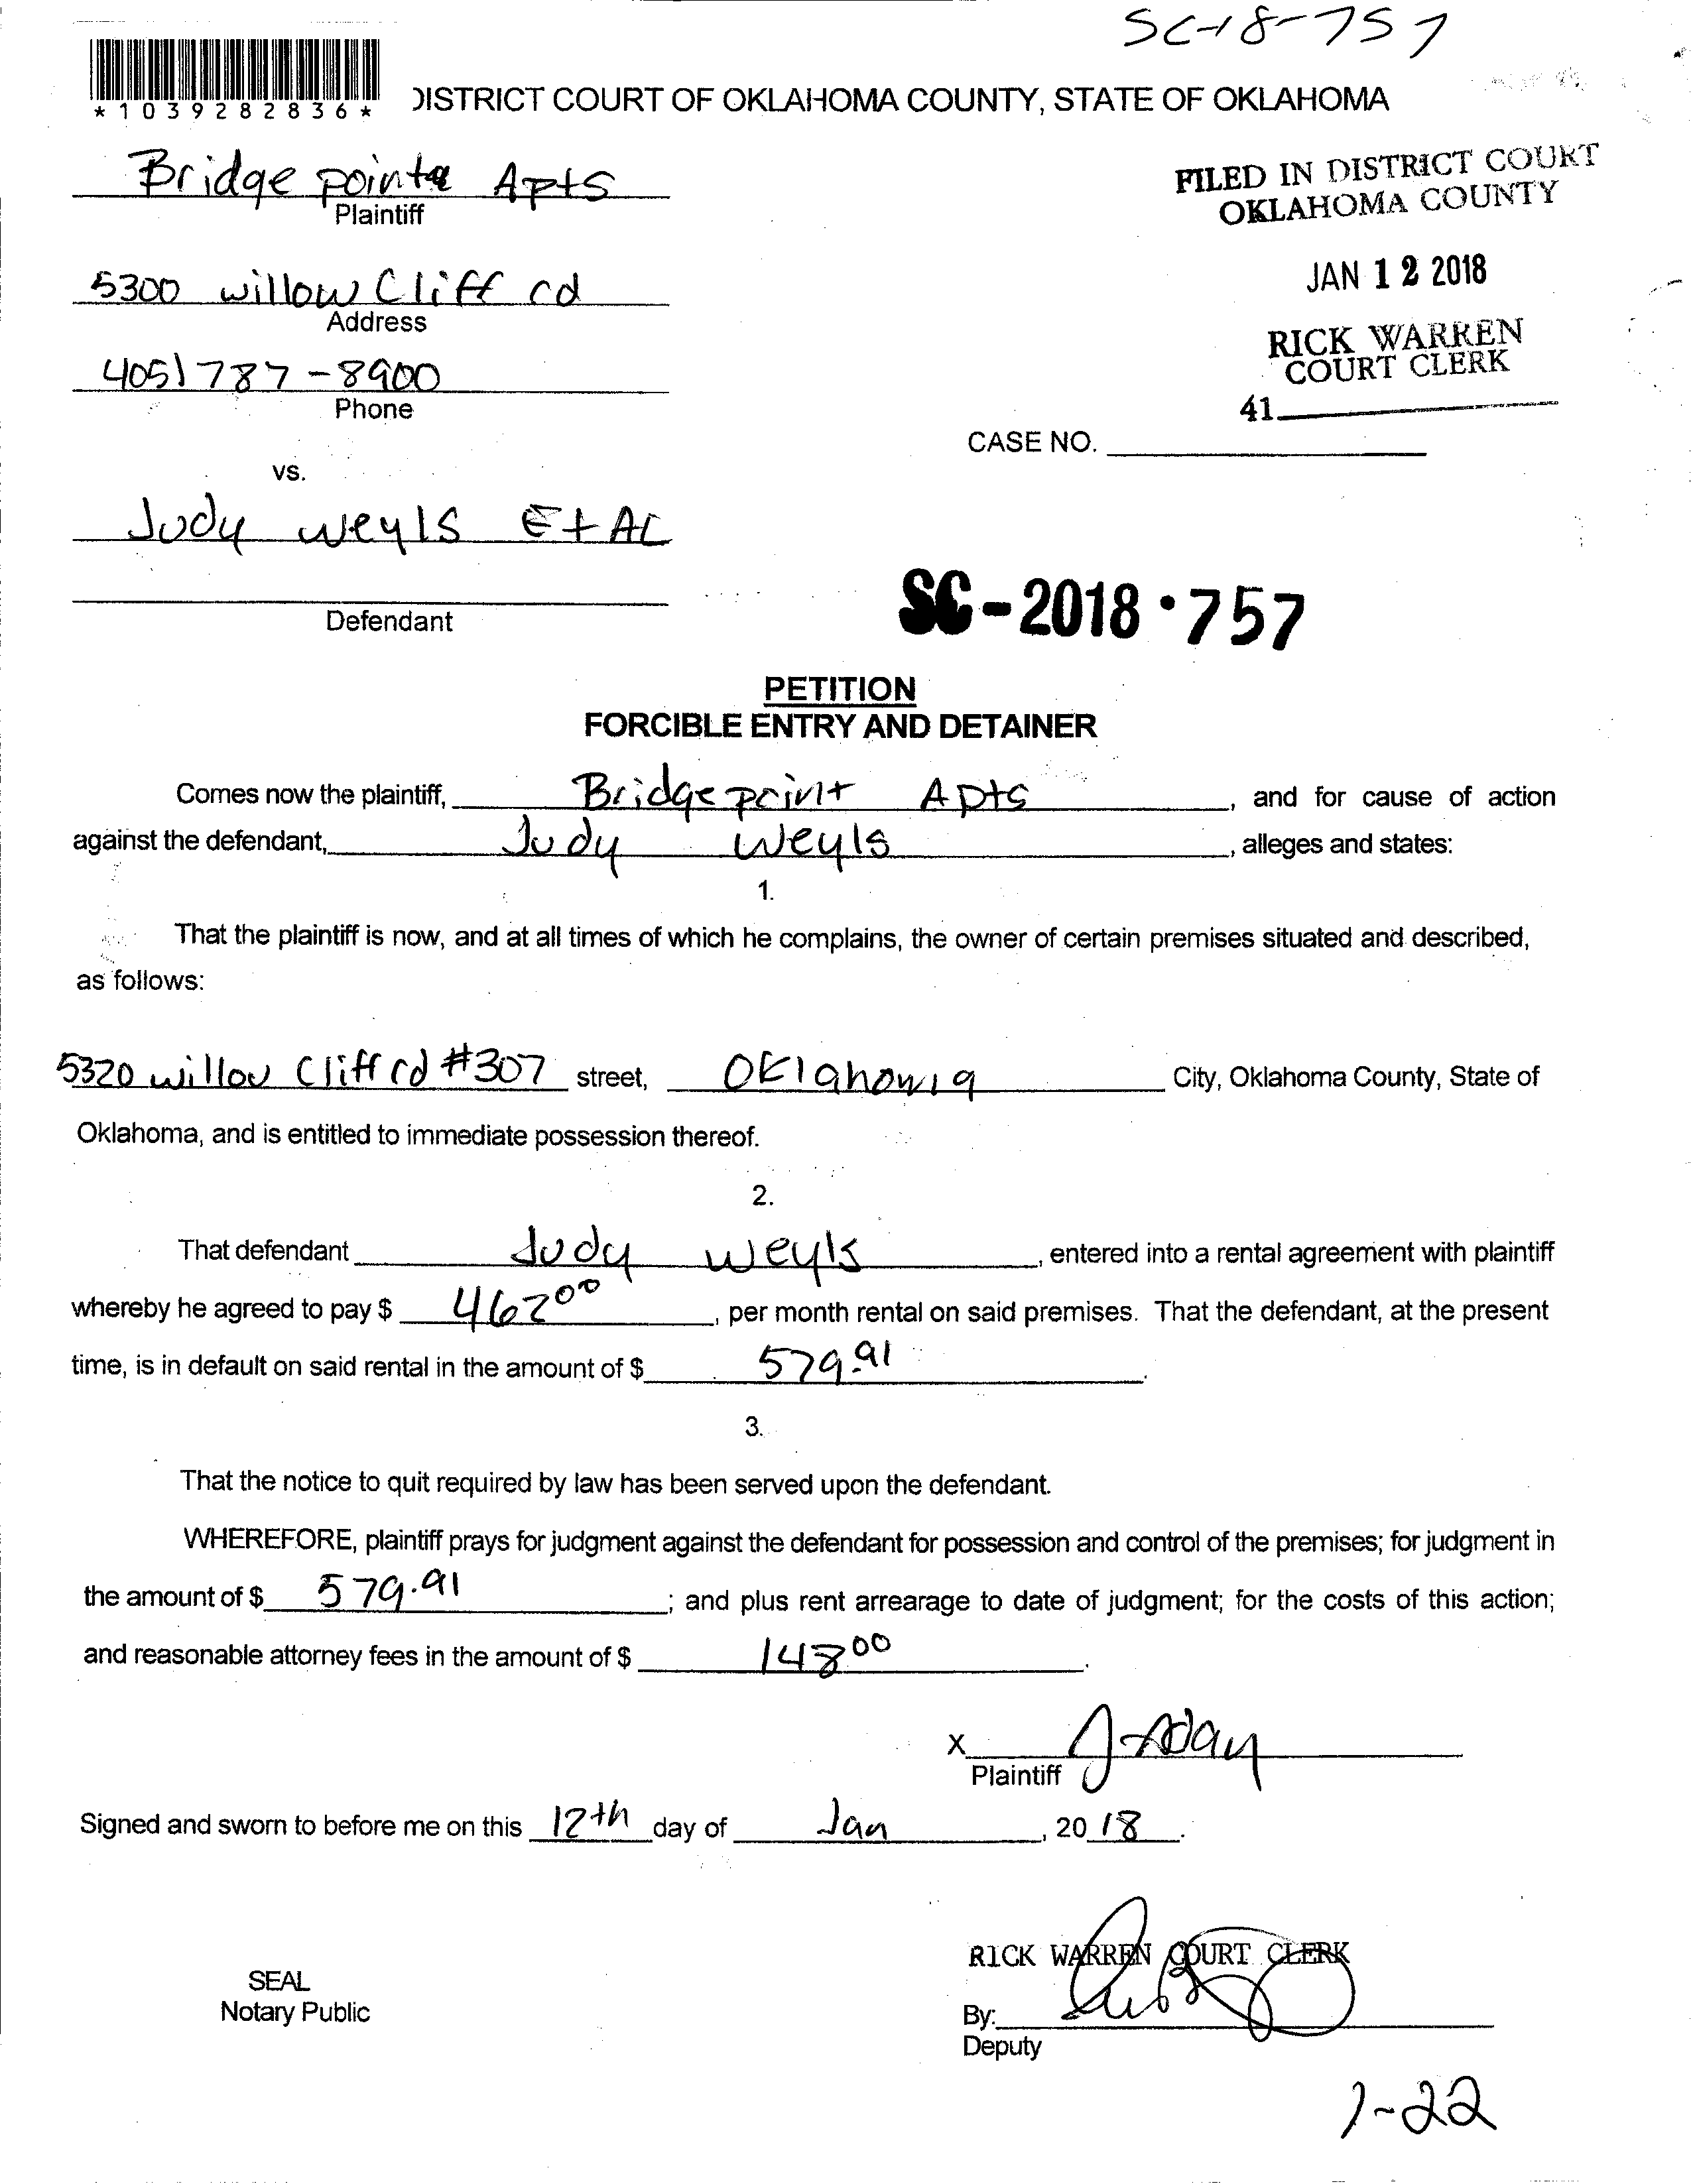 SC-18-757
*1039282836*
DISTRICT COURT OF OKLAHOMA COUNTY, STATE OF OKLAHOMA
Bridge pointe Apts
Plaintiff
FILED IN DISTRICT COURT
OKLAHOMA COUNTY
5300 willow Cliff rd
Address
JAN 12 2018
405) 787-8900
Phone
RICK WARREN
COURT CLERK
41
CASE NO.
vs.
Judy weyls Et AL
Defendant
SC-2018·757
PETITION
FORCIBLE ENTRY AND DETAINER
Comes now the plaintiff, Bridgepoint Apts, and for cause of action
against the defendant, Judy Weyls, alleges and states:
1.
That the plaintiff is now, and at all times of which he complains, the owner of certain premises situated and described,
as follows:
5320 willow Cliff rd #307 street, Oklahoma City, Oklahoma County, State of
Oklahoma, and is entitled to immediate possession thereof.
2.
That defendant Judy weyls, entered into a rental agreement with plaintiff
whereby he agreed to pay $ 462 00, per month rental on said premises. That the defendant, at the present
time, is in default on said rental in the amount of $ 579.91.
3.
That the notice to quit required by law has been served upon the defendant.
WHEREFORE, plaintiff prays for judgment against the defendant for possession and control of the premises; for judgment in
the amount of $ 579.91; and plus rent arrearage to date of judgment; for the costs of this action;
and reasonable attorney fees in the amount of $ 148 00.
X J-Aday
Plaintiff
Signed and sworn to before me on this 12th day of Jan, 20 18.
RICK WARREN COURT CLERK
SEAL
Notary Public
By:
Deputy
1-22